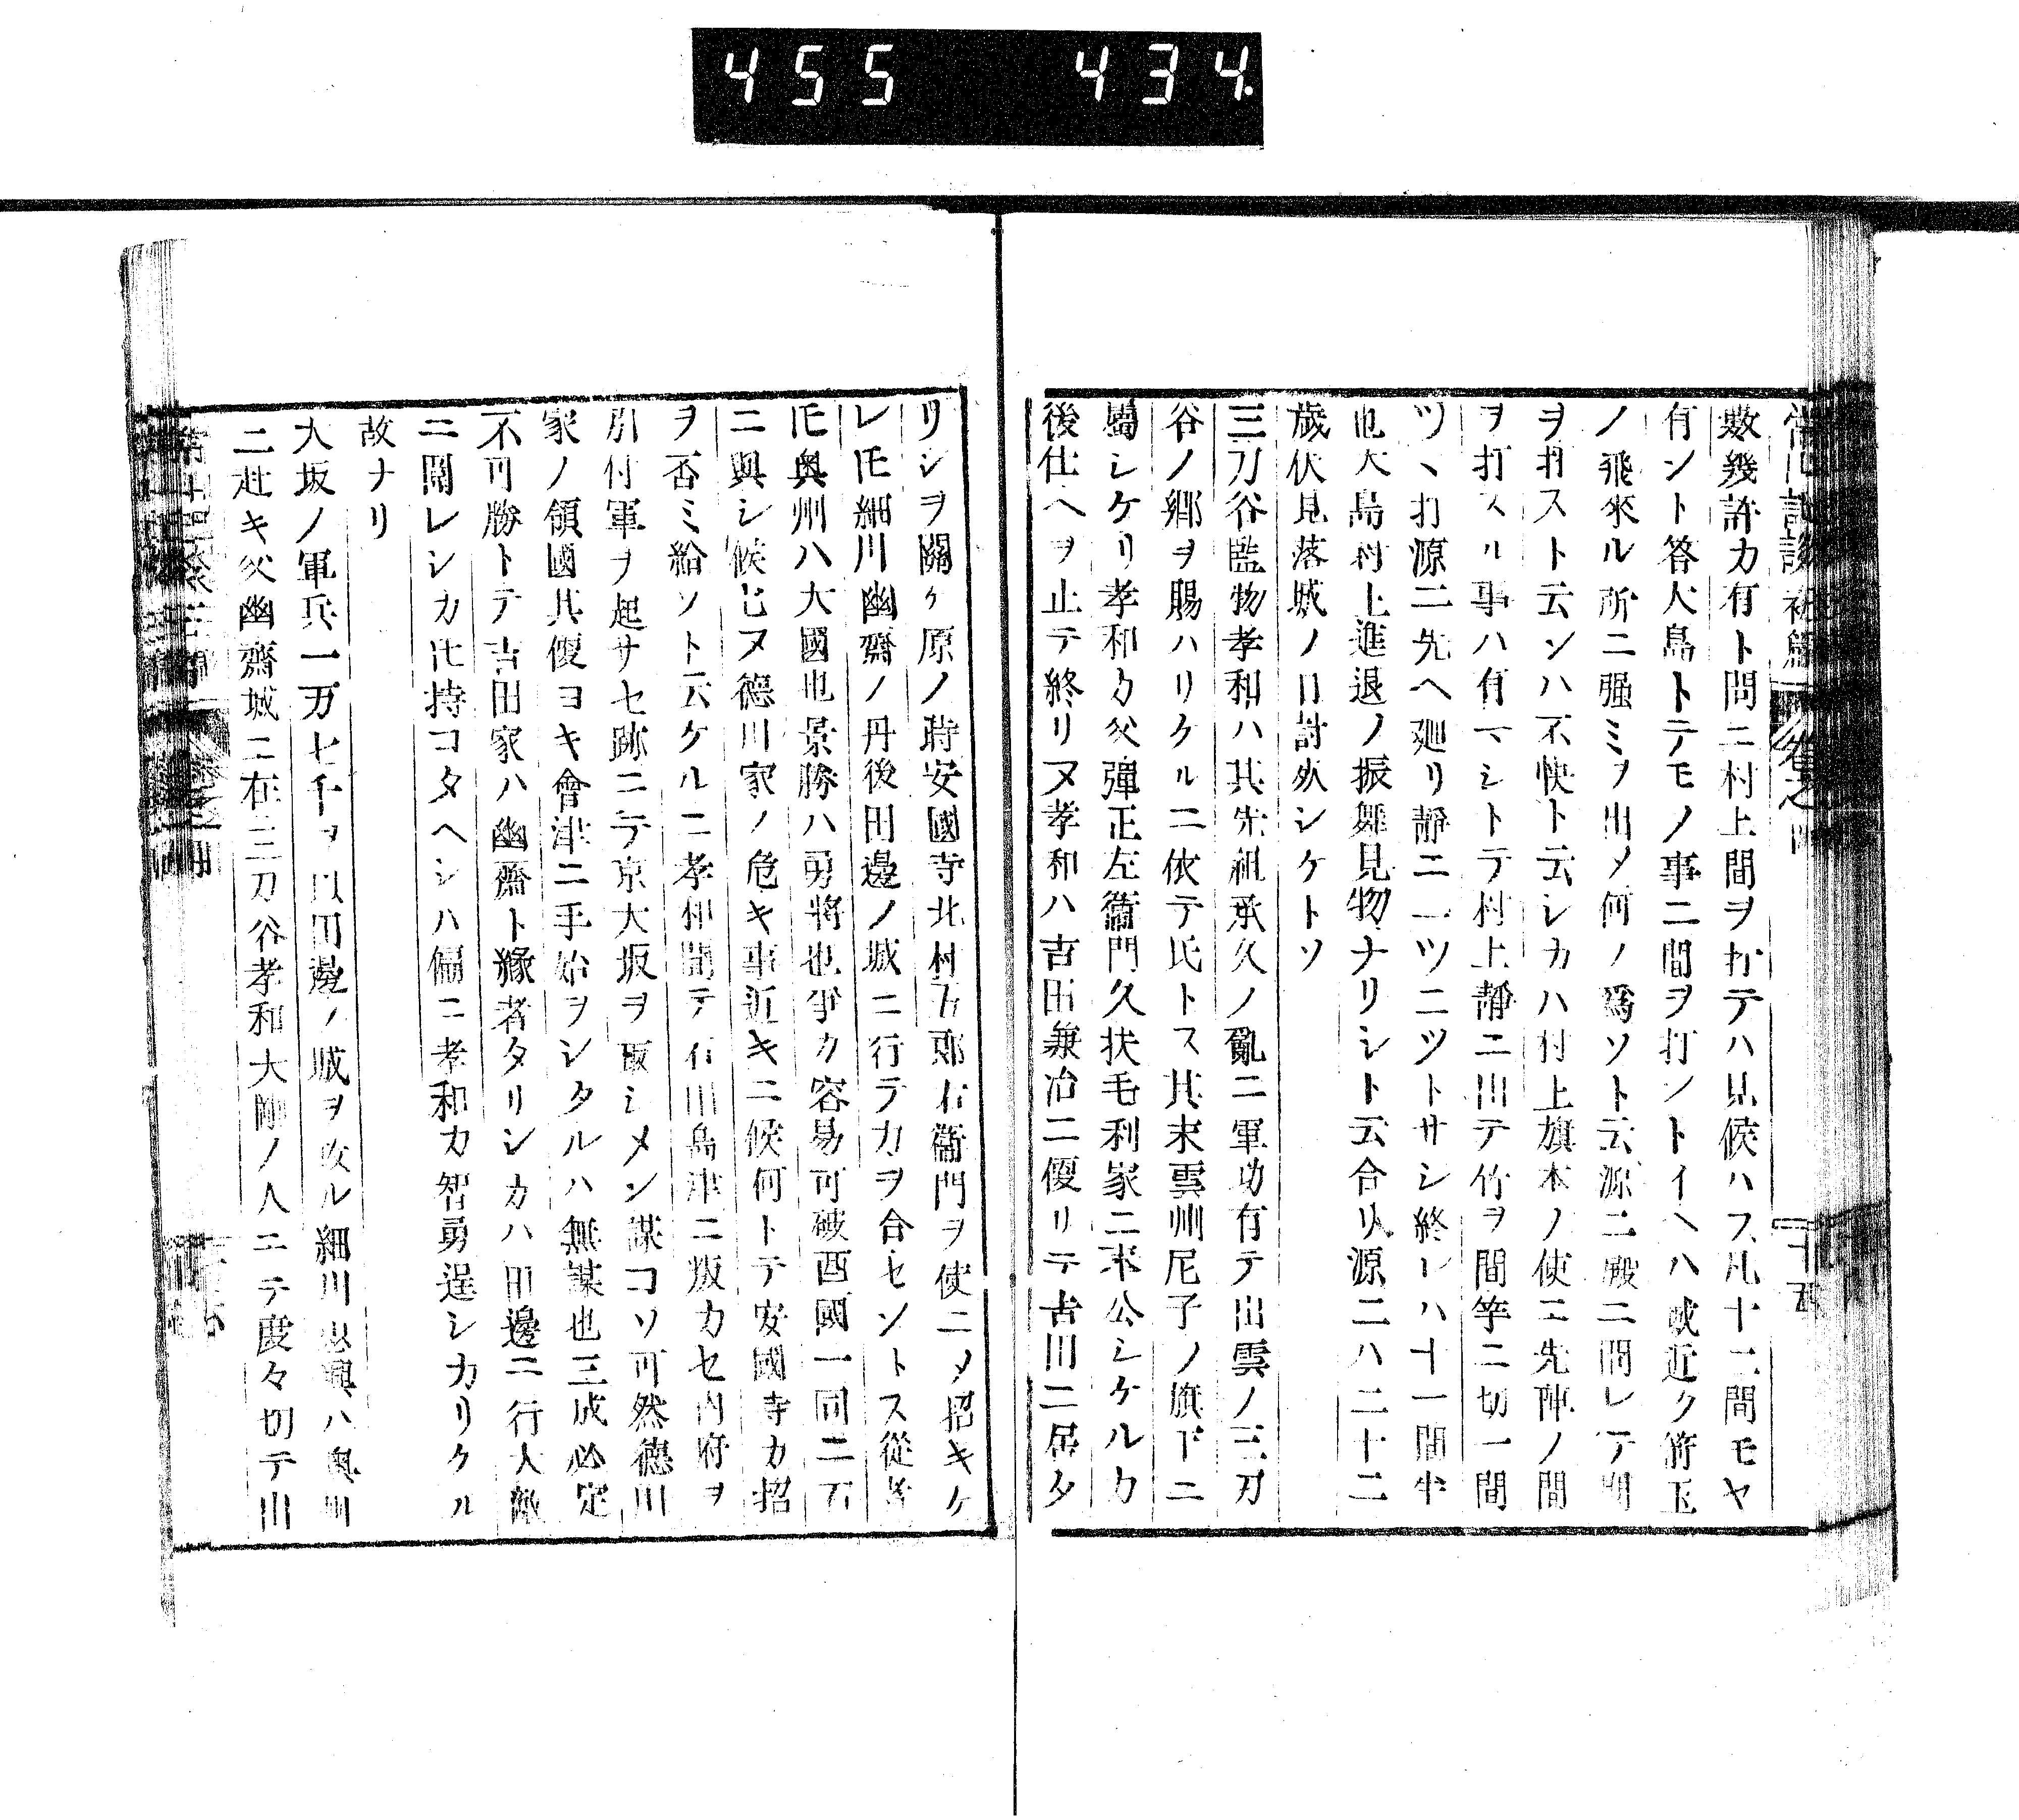 455 434.
數幾許カ有ト問ニ村上間ヲ打テハ見候ハス凡十二間モヤ
有ント答大島トテモノ事ニ間ヲ打ントイヘハ城近ク箭玉
ノ飛來ル所ニ强ミヲ出メ何ノ爲ソト云源二殿ニ問レテ間
ヲ打スト云ンハ不快ト云シカハ村上旗本ノ使ニ先陣ノ間
ヲ打スル事ハ有マシトテ村上靜ニ出テ竹ヲ間竿ニ切一間
ツヽ打源二先ヘ廻リ靜ニ一ツ二ツトサシ終レハ十一間半
也大島村上進退ノ振舞見物ナリシト云合リ源二ハ二十二
歲伏見落城ノ日討死シケトソ
三刀谷監物孝和ハ其先祖承久ノ亂ニ軍功有テ出雲ノ三刀
谷ノ鄕ヲ賜ハリケルニ依テ氏トス其末雲州尼子ノ旗下ニ
屬シケリ孝和カ父彈正左衞門久扶毛利家ニ來公シケルカ
後仕ヘヲ止テ終リヌ孝和ハ吉田兼治ニ便リテ吉川ニ居タ
リシヲ關ケ原ノ時安國寺北村五郎右衞門ヲ使ニメ招キケ
レ𪜈細川幽齋ノ丹後田邊ノ城ニ行テ力ヲ合セントス從者
𪜈奧州ハ大國也景勝ハ勇將也爭カ容易可破西國一同ニ石
ニ與シ候ヒヌ德川家ノ危キ事近キニ候何トテ安國寺カ招
ヲ否ミ給ソト云ケルニ孝和聞テ石田島津ニ叛カセ內府ヲ
引付軍ヲ起サセ跡ニテ京大坂ヲ取シメン謀コソ可然德川
家ノ領國其便ヨキ會津ニ手始ヲシタルハ無謀也三成必定
不可勝トテ吉田家ハ幽齋ト緣者タリシカハ田邊ニ行大敵
ニ圍レシカ𪜈持コタヘシハ偏ニ孝和カ智勇逞シカリケル
故ナリ
大坂ノ軍兵一万七千ヲ以田邊ノ城ヲ攻ル細川忠興ハ奧州
ニ赴キ父幽齋城ニ在三刀谷孝和大剛ノ人ニテ度々切テ出